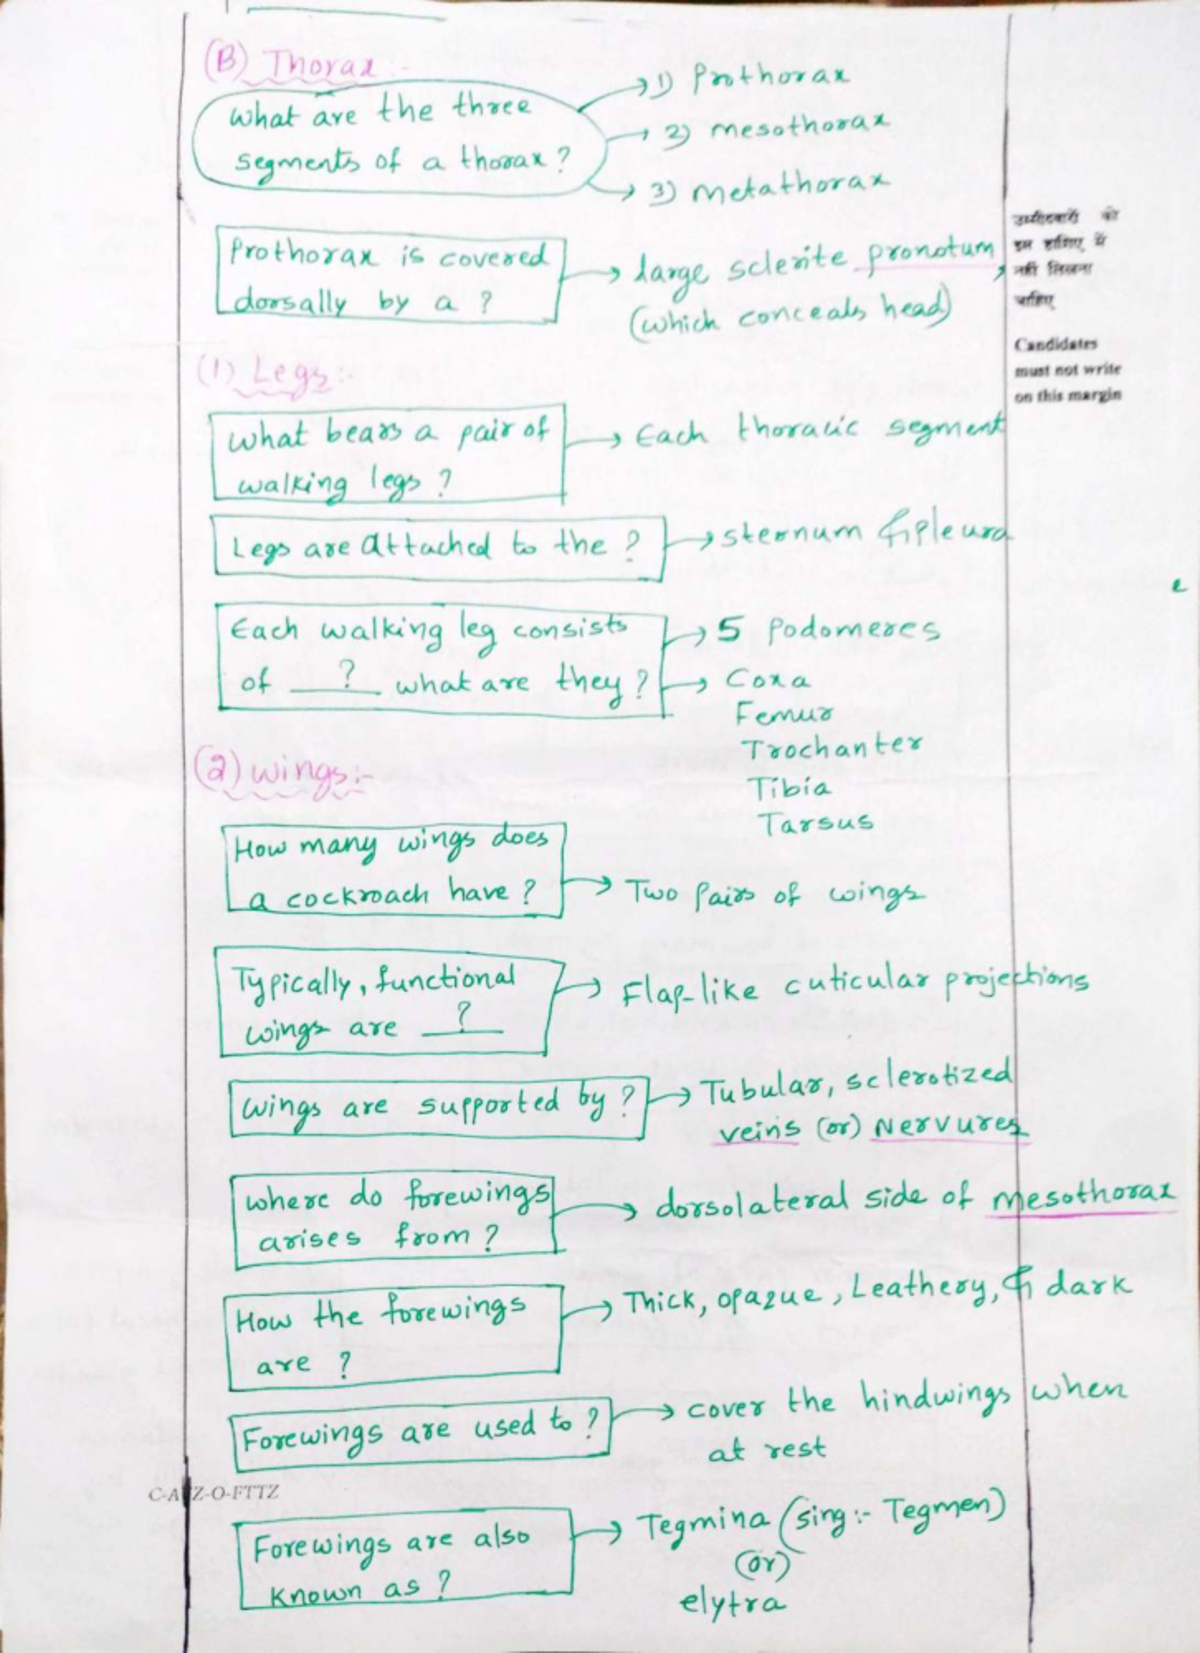 (B) Thorax :-
What are the three
segments of a thorax?
1) Prothorax
2) mesothorax
3) metathorax
Prothorax is covered
dorsally by a ?
large sclerite pronotum
(which conceals head)
उम्मीदवारों को
इस हाशिए में
नहीं लिखना
चाहिए
Candidates
must not write
on this margin
(1) Legs :-
What bears a pair of
walking legs ?
Each thoracic segment
Legs are Attached to the ?
sternum & pleura
Each walking leg consists
of ___?___ what are they?
5 Podomeres
Coxa
Femur
Trochanter
Tibia
Tarsus
(2) wings :-
How many wings does
a cockroach have ?
Two Pairs of wings
Typically, functional
wings are ___?___
Flap-like cuticular projections
Wings are supported by ?
Tubular, sclerotized
veins (or) Nervures
where do forewings
arises from ?
dorsolateral side of mesothorax
How the forewings
are ?
Thick, opaque, Leathery, & dark
Forewings are used to ?
cover the hindwings when
at rest
Forewings are also
known as ?
Tegmina (sing :- Tegmen)
(or)
elytra